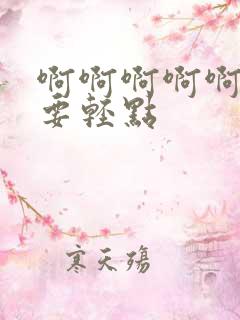 啊啊啊啊啊
要轻點
寒天殤